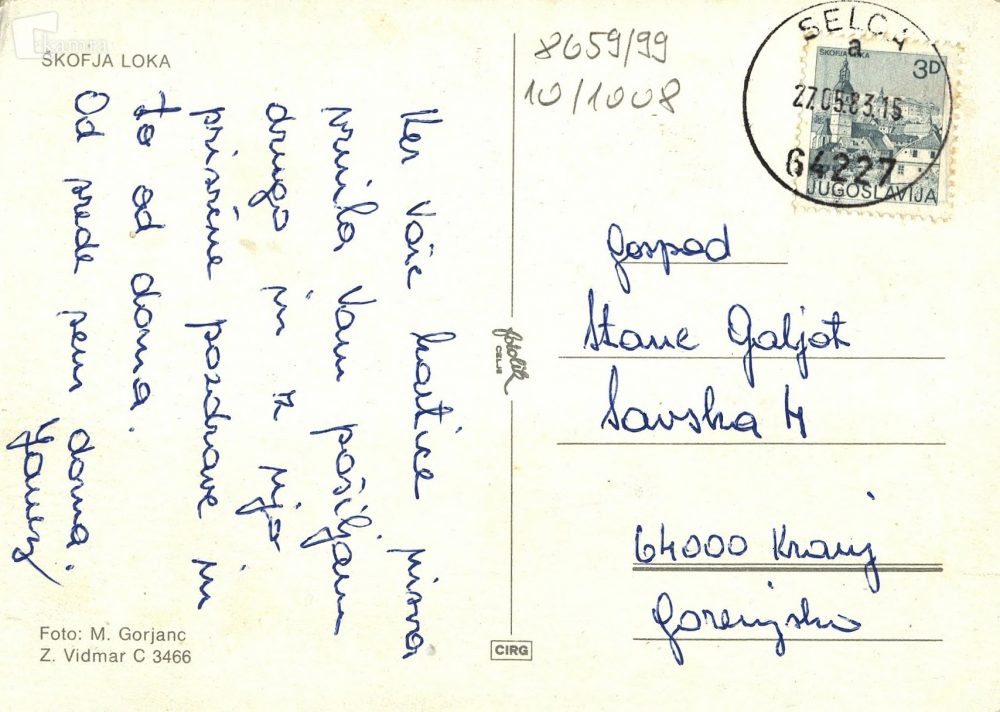 ŠKOFJA LOKA
8659/99
10/1008
SELCA
a
27.05.83.15
64227
ŠKOFJA LOKA
3D
JUGOSLAVIJA
Ker Vaše kartice nisva
vrnila Vam pošiljam
drugo in z njo
prisrčne pozdrave in
to od doma.
Od srede sem doma.
Gospod
Stane Galjot
Savska 4
64000 Kranj
Gorenjsko
fotolik
CELJE
Foto: M. Gorjanc
Z. Vidmar C 3466
CIRG